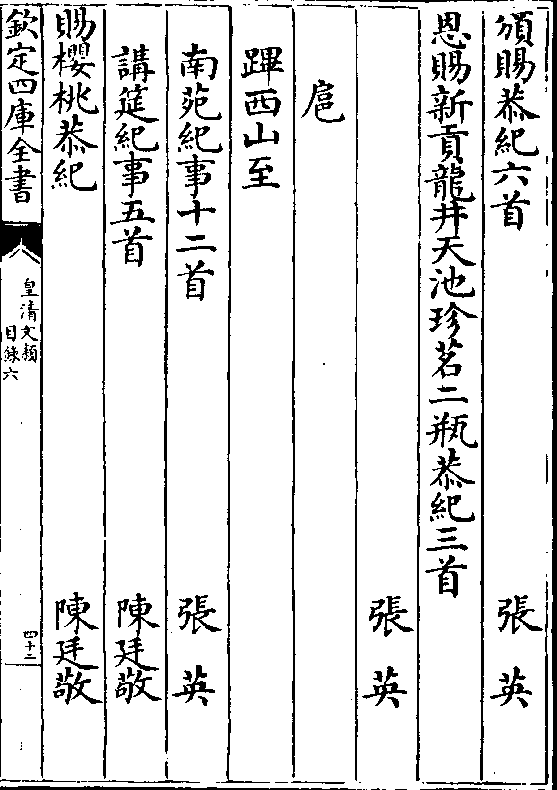 頒賜恭紀六首 張英
恩賜新貢龍井天池珍茗二瓶恭紀三首
張英
扈
蹕西山至
南苑紀事十二首 張英
講筵紀事五首 陳廷敬
賜櫻桃恭紀 陳廷敬
欽定四庫全書
皇清文穎
目錄六
四十二